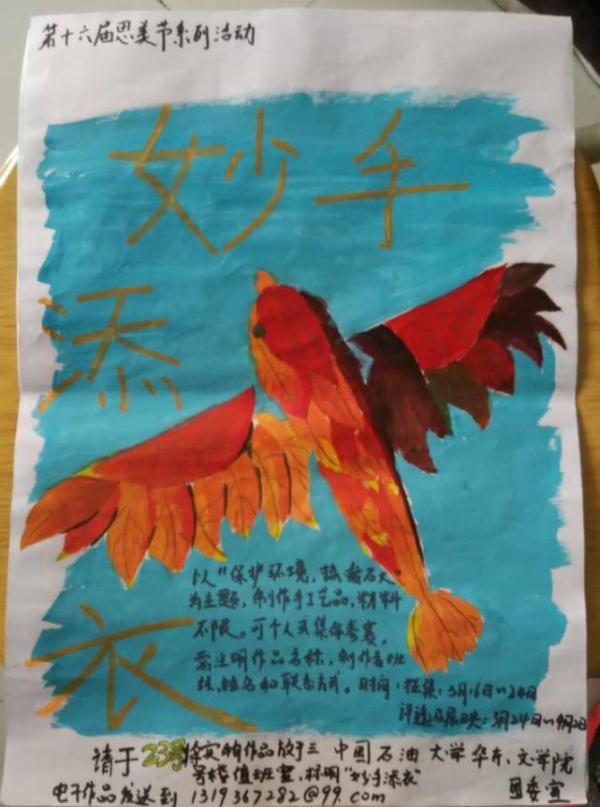 第十六届思美节系列活动
妙手
添
衣
以"保护环境,热爱石大"
为主题,制作手工艺品,材料
不限。可个人或集体参赛,
需注明作品名称,制作者班
级,姓名和联系方式。时间:征集:3月16日~24日
评选及展映:3月24日~4月2日
请于23号将实物作品放于三 中国石油大学华东、文学院
号楼值班室,标明"妙手添衣" 团委宣
电子作品发送到 1319367282@99.com